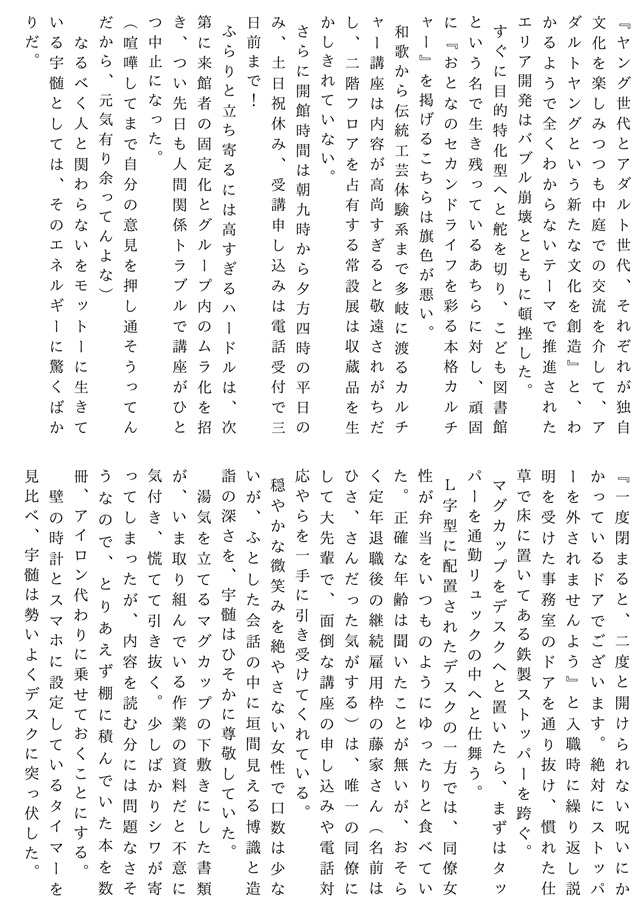 『ヤング世代とアダルト世代、それぞれが独自
文化を楽しみつつも中庭での交流を介して、ア
ダルトヤングという新たな文化を創造』と、わ
かるようで全くわからないテーマで推進された
エリア開発はバブル崩壊とともに頓挫した。
　すぐに目的特化型へと舵を切り、こども図書館
という名で生き残っているあちらに対し、頑固
に『おとなのセカンドライフを彩る本格カルチ
ャー』を掲げるこちらは旗色が悪い。
　和歌から伝統工芸体験系まで多岐に渡るカルチ
ャー講座は内容が高尚すぎると敬遠されがちだ
し、二階フロアを占有する常設展は収蔵品を生
かしきれていない。
　さらに開館時間は朝九時から夕方四時の平日の
み、土日祝休み、受講申し込みは電話受付で三
日前まで！
　ふらりと立ち寄るには高すぎるハードルは、次
第に来館者の固定化とグループ内のムラ化を招
き、つい先日も人間関係トラブルで講座がひと
つ中止になった。
（喧嘩してまで自分の意見を押し通そうってん
だから、元気有り余ってんよな）
　なるべく人と関わらないをモットーに生きて
いる宇髄としては、そのエネルギーに驚くばか
りだ。
『一度閉まると、二度と開けられない呪いにか
かっているドアでございます。絶対にストッパ
ーを外されませんよう』と入職時に繰り返し説
明を受けた事務室のドアを通り抜け、慣れた仕
草で床に置いてある鉄製ストッパーを跨ぐ。
　マグカップをデスクへと置いたら、まずはタッ
パーを通勤リュックの中へと仕舞う。
　Ｌ字型に配置されたデスクの一方では、同僚女
性が弁当をいつものようにゆったりと食べてい
た。正確な年齢は聞いたことが無いが、おそら
く定年退職後の継続雇用枠の藤家さん（名前は
ひさ、さんだった気がする）は、唯一の同僚に
して大先輩で、面倒な講座の申し込みや電話対
応やらを一手に引き受けてくれている。
　穏やかな微笑みを絶やさない女性で口数は少な
いが、ふとした会話の中に垣間見える博識と造
詣の深さを、宇髄はひそかに尊敬していた。
　湯気を立てるマグカップの下敷きにした書類
が、いま取り組んでいる作業の資料だと不意に
気付き、慌てて引き抜く。少しばかりシワが寄
ってしまったが、内容を読む分には問題なさそ
うなので、とりあえず棚に積んでいた本を数
冊、アイロン代わりに乗せておくことにする。
　壁の時計とスマホに設定しているタイマーを
見比べ、宇髄は勢いよくデスクに突っ伏した。